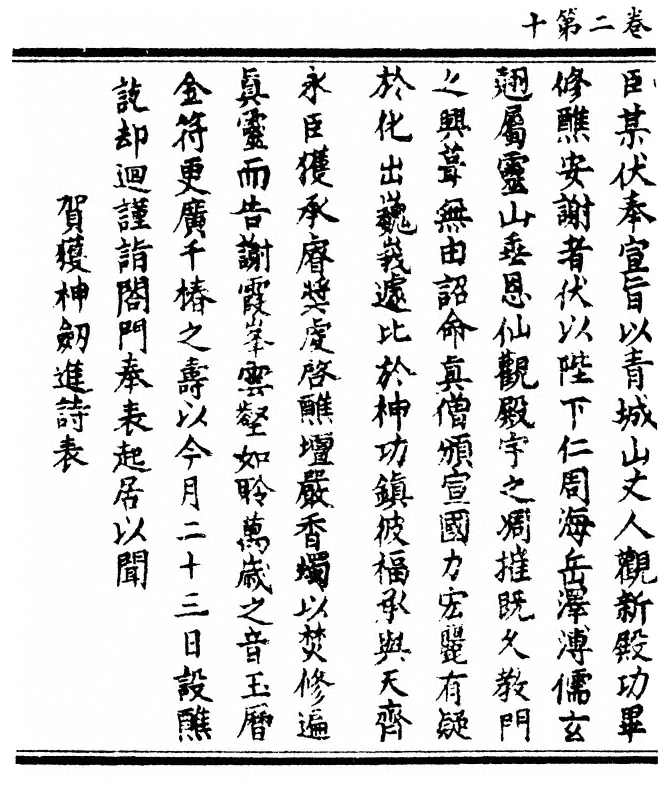 卷二第十
臣某伏奉宣旨以青城山丈人觀新殿功畢
修醮安謝者伏以陛下仁周海岳澤溥儒玄
翹屬靈山垂恩仙觀殿宇之凋摧既久教門
之興葺無由詔命真僧頒宣國力宏麗有疑
於化出巍峩遽比於神功鎮彼福承與天齊
永臣獲承睿獎虔啓醮壇嚴香燭以焚修遍
真靈而告謝霞峯雲壑如聆萬歲之音玉曆
金符更廣千椿之壽以今月二十三日設醮
訖却迴謹詣閤門奉表起居以聞
賀獲神劒進詩表